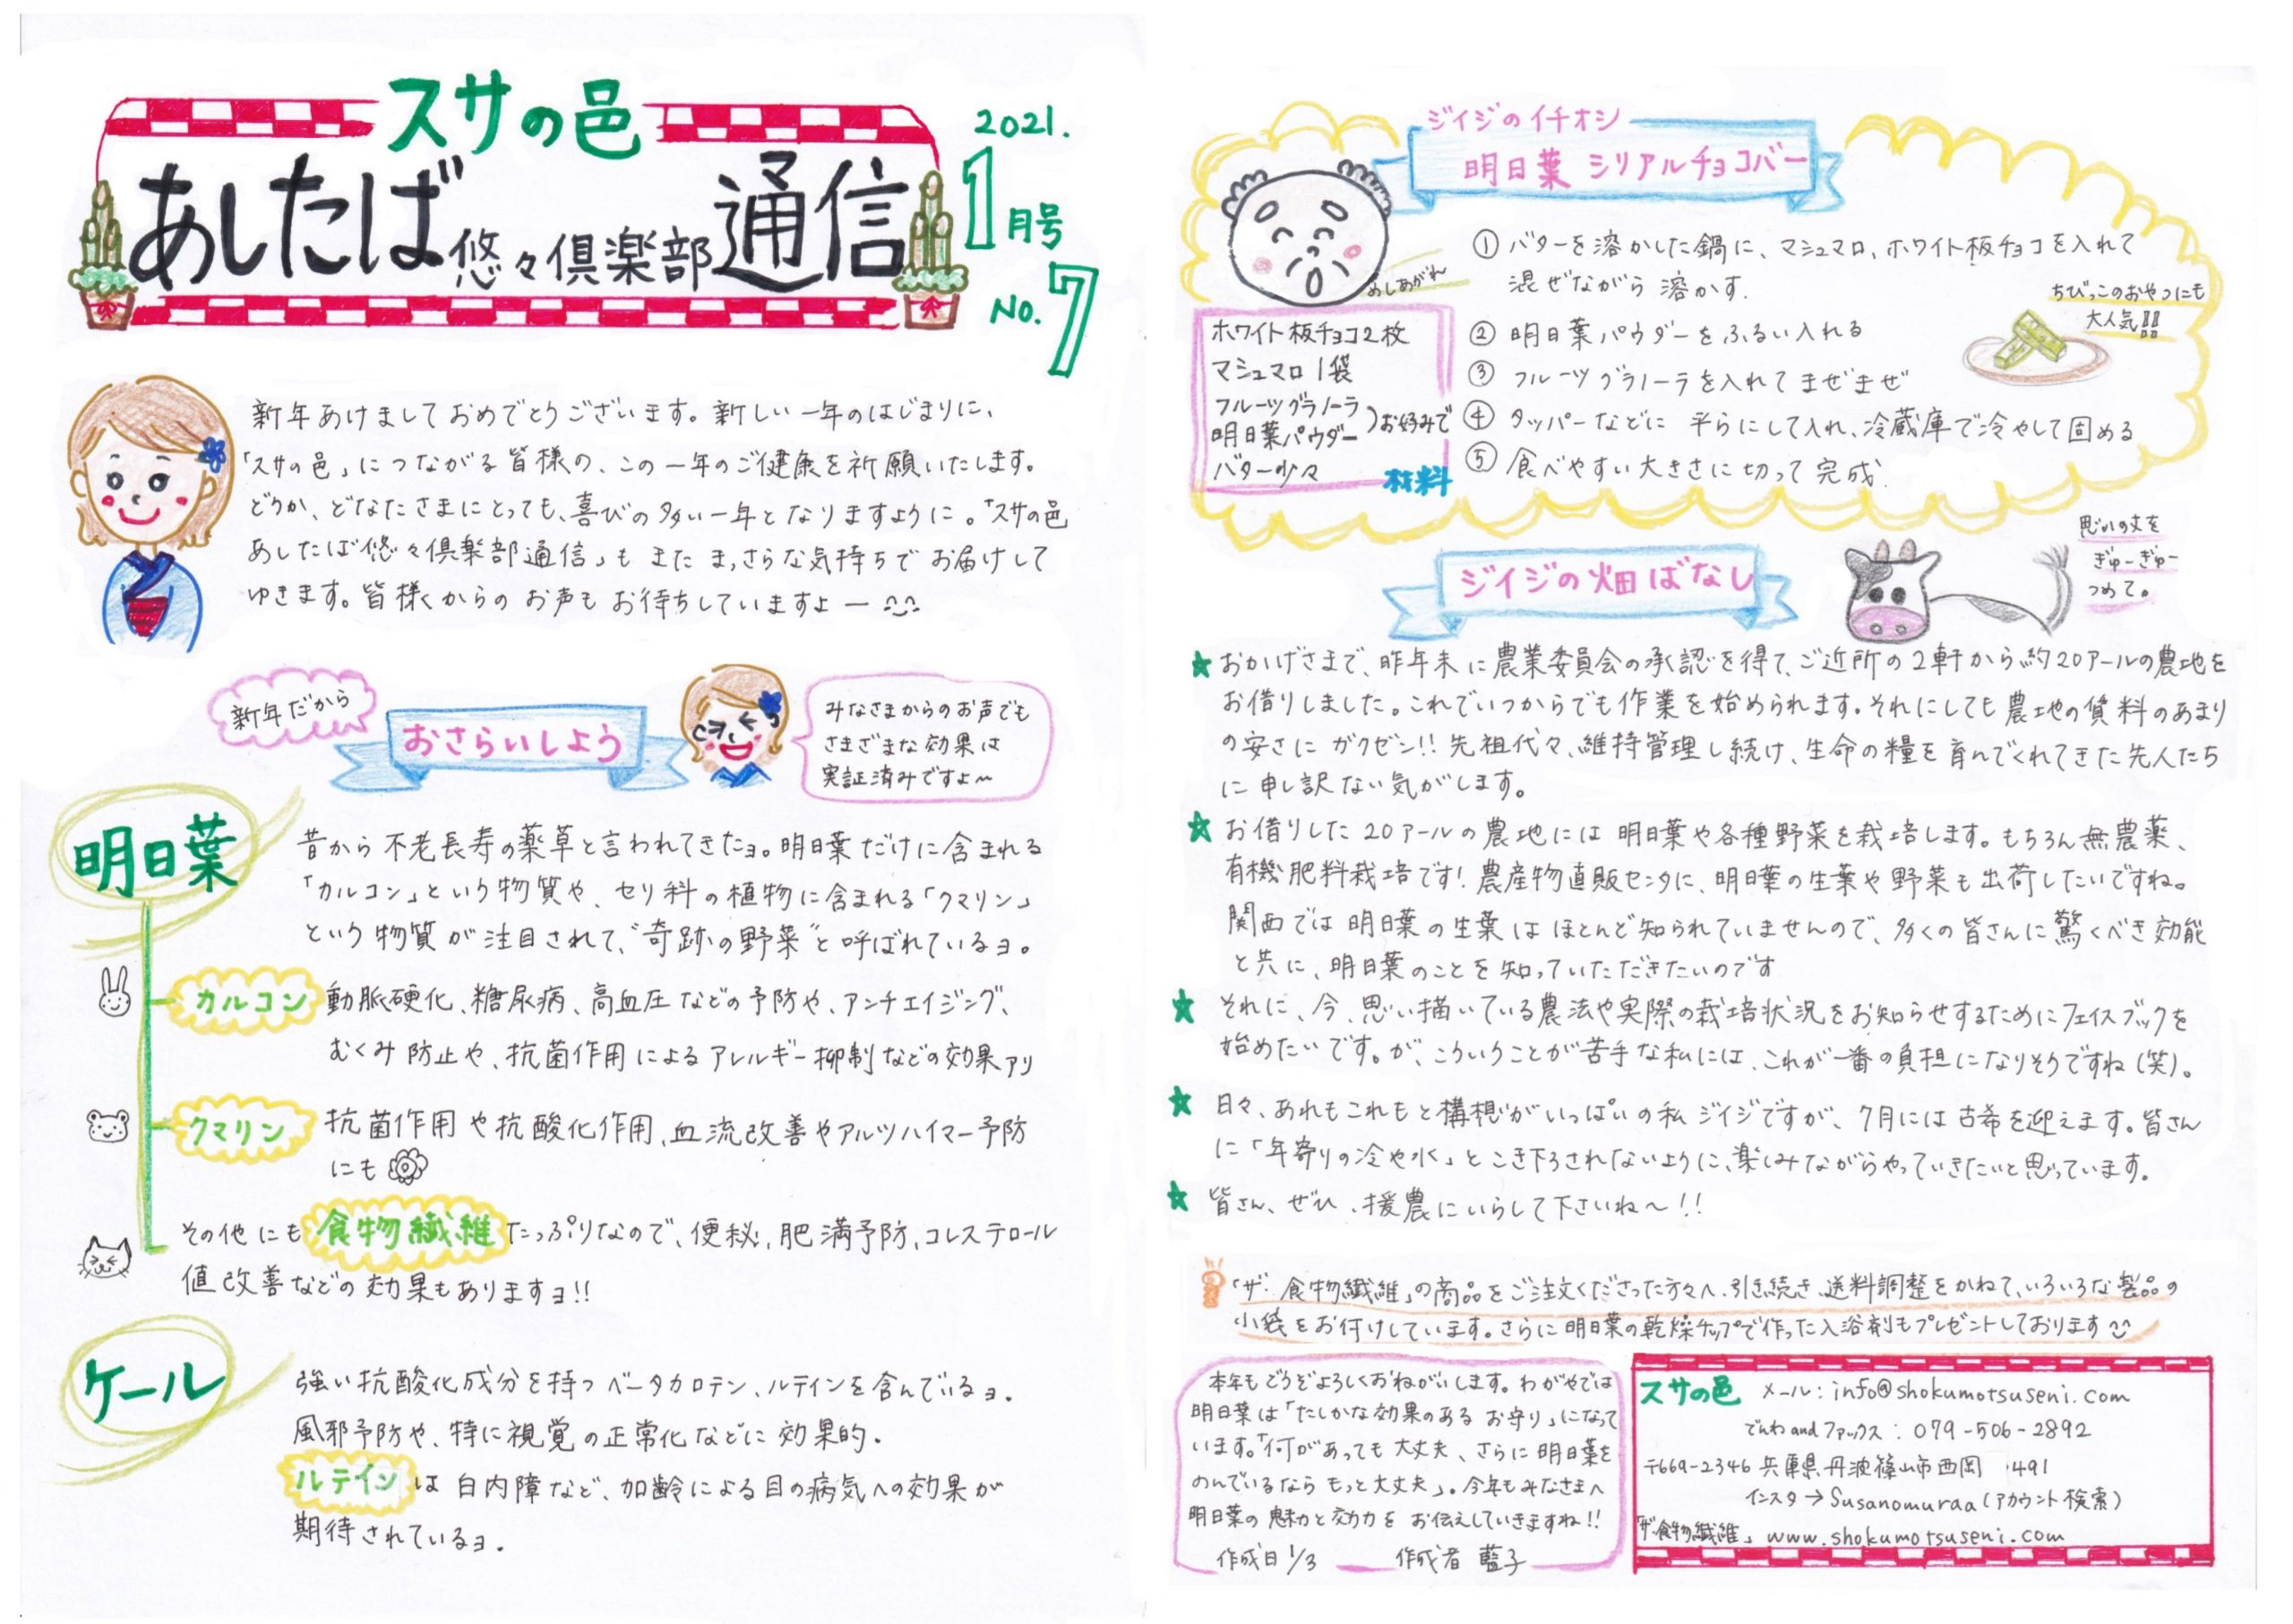 スサの邑
あしたば悠々倶楽部通信
2021.
1月号
No.7
新年あけましておめでとうございます。新しい一年のはじまりに、
「スサの邑」につながる皆様の、この一年のご健康を祈願いたします。
どうか、どなたさまにとっても、喜びの多い一年となりますように。「スサの邑
あしたば悠々倶楽部通信」もまたまっさらな気持ちでお届けして
ゆきます。皆様からのお声もお待ちしていますよー
新年だから
おさらいしよう
みなさまからのお声でも
さまざまな効果は
実証済みですよ〜
明日葉
昔から不老長寿の薬草と言われてきたヨ。明日葉だけに含まれる
「カルコン」という物質や、セリ科の植物に含まれる「クマリン」
という物質が注目されて、"奇跡の野菜"と呼ばれているヨ。
カルコン 動脈硬化、糖尿病、高血圧などの予防や、アンチエイジング、
むくみ防止や、抗菌作用によるアレルギー抑制などの効果アリ
クマリン 抗菌作用や抗酸化作用、血流改善やアルツハイマー予防
にも
その他にも食物繊維たっぷりなので、便秘、肥満予防、コレステロール
値改善などの効果もありますヨ!!
ケール
強い抗酸化成分を持つベータカロテン、ルテインを含んでいるヨ.
風邪予防や、特に視覚の正常化などに効果的.
ルテインは白内障など、加齢による目の病気への効果が
期待されているヨ.
ジイジのイチオシ
明日葉シリアルチョコバー
めしあがれ
ホワイト板チョコ2枚
マシュマロ1袋
フルーツグラノーラ
明日葉パウダー
)お好みで
バター少々
材料
① バターを溶かした鍋に、マシュマロ、ホワイト板チョコを入れて
混ぜながら溶かす.
② 明日葉パウダーをふるい入れる
③ フルーツグラノーラを入れてまぜまぜ
④ タッパーなどに平らにして入れ、冷蔵庫で冷やして固める
⑤ 食べやすい大きさに切って完成.
ちびっこのおやつにも
大人気!!
ジイジの畑ばなし
思いの丈を
ぎゅーぎゅー
つめて。
★おかげさまで、昨年末に農業委員会の承認を得て、ご近所の2軒から約20アールの農地を
お借りしました。これでいつからでも作業を始められます。それにしても農地の賃料のあまり
の安さにガクゼン!!先祖代々、維持管理し続け、生命の糧を育んでくれてきた先人たち
に申し訳ない気がします。
★お借りした20アールの農地には明日葉や各種野菜を栽培します。もちろん無農薬、
有機肥料栽培です!農産物直販センタに、明日葉の生葉や野菜も出荷したいですね。
関西では明日葉の生葉はほとんど知られていませんので、多くの皆さんに驚くべき効能
と共に、明日葉のことを知っていただきたいのです
★それに、今、思い描いている農法や実際の栽培状況をお知らせするためにフェイスブックを
始めたいです。が、こういうことが苦手な私には、これが一番の負担になりそうですね(笑)。
★日々、あれもこれもと構想がいっぱいの私ジイジですが、7月には古希を迎えます。皆さん
に「年寄りの冷や水」とこき下ろされないように、楽しみながらやっていきたいと思っています。
★皆さん、ぜひ、援農にいらして下さいね〜!!
「ザ・食物繊維」の商品をご注文くださった方々へ、引き続き、送料調整をかねて、いろいろな製品の
小袋をお付けしています。さらに明日葉の乾燥チップで作った入浴剤もプレゼントしております
本年もどうぞよろしくおねがいします。わがやでは
明日葉は「たしかな効果のあるお守り」になって
います。「何があっても大丈夫、さらに明日葉を
のんでいるならもっと大丈夫」。今年もみなさまへ
明日葉の魅力と効力をお伝えしていきますね!!
作成日1/3 作成者 藍子
スサの邑 メール:info@shokumotsuseni.com
でんわandファックス:079-506-2892
〒669-2346 兵庫県丹波篠山市西岡 491
インスタ→Susanomuraa(アカウント検索)
「ザ・食物繊維」www.shokumotsuseni.com